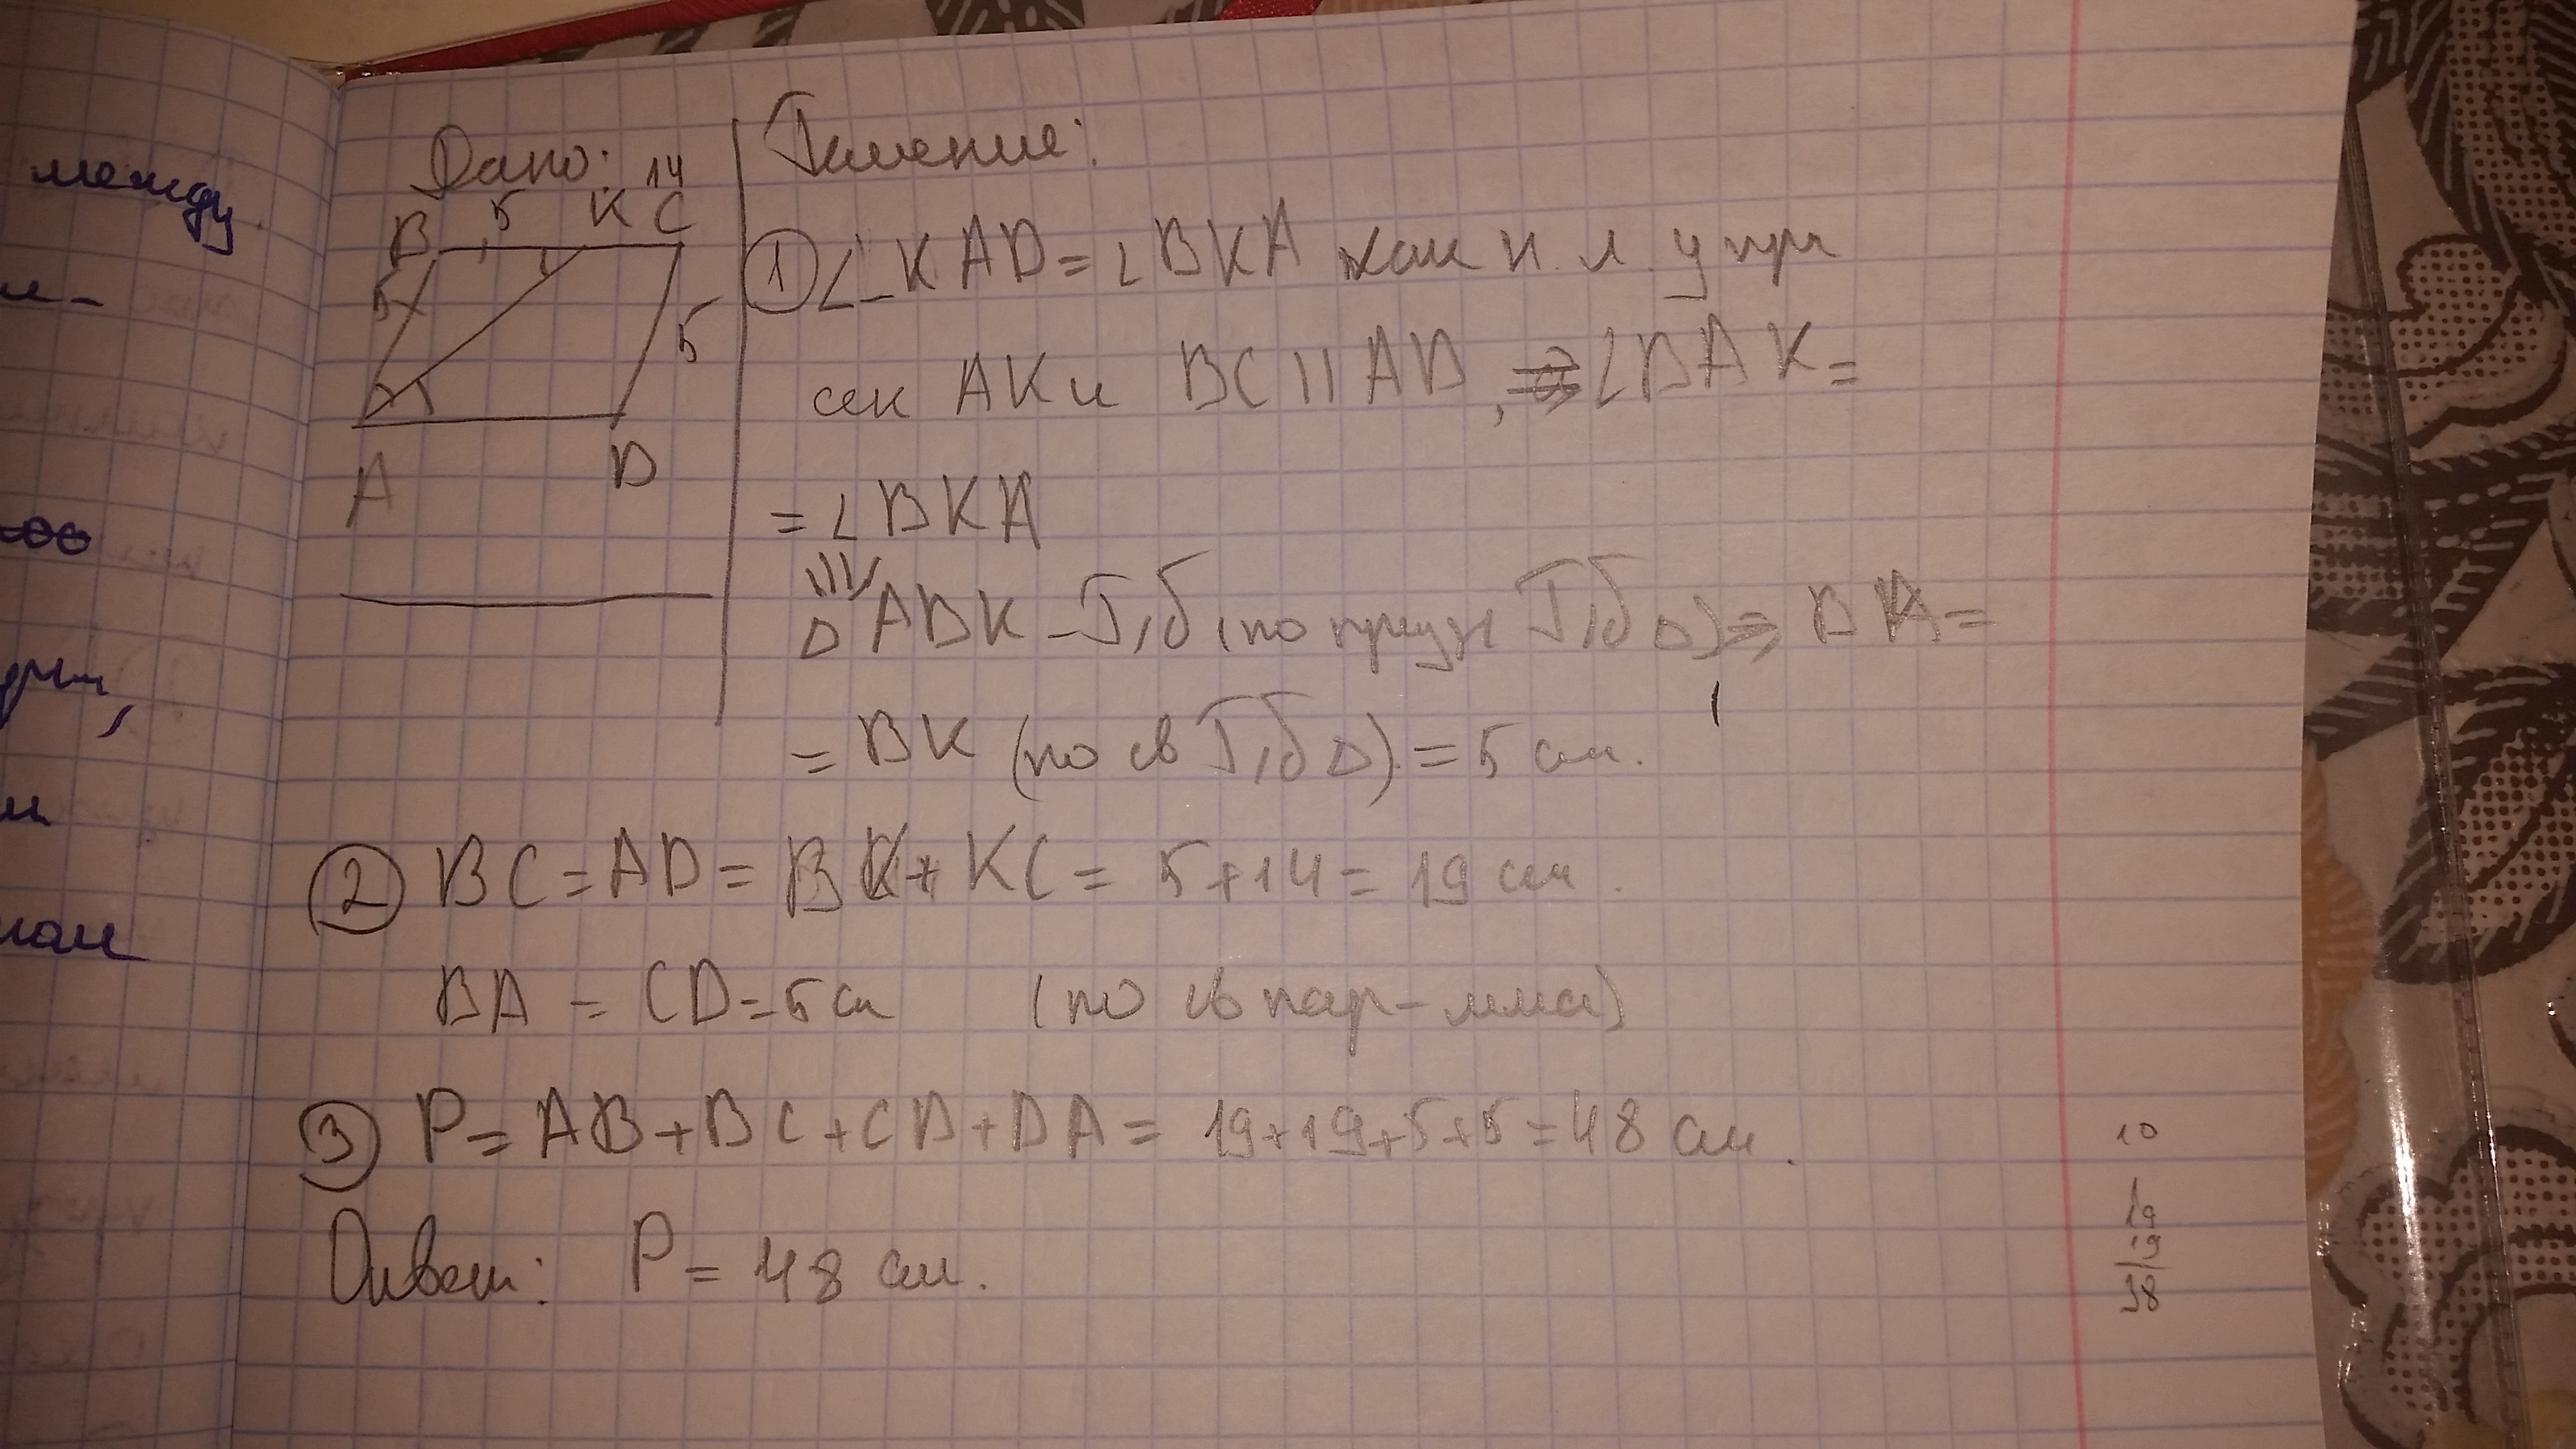 между
Дано:
14
B 5 K C
5
5
A
D
Решение:
① ∠KAD = ∠BKA как н. л. у при
сек AK и BC || AD, ⇒ ∠BAK =
= ∠BKA
Δ ABK – р/б (по призн р/б Δ) ⇒ BA =
= BK (по св р/б Δ) = 5 см.
② BC = AD = BK + KC = 5 + 14 = 19 см.
BA = CD = 5 см (по св пар-мма)
③ P = AB + BC + CD + DA = 19 + 19 + 5 + 5 = 48 см.
Ответ: P = 48 см.
10
19
19
38